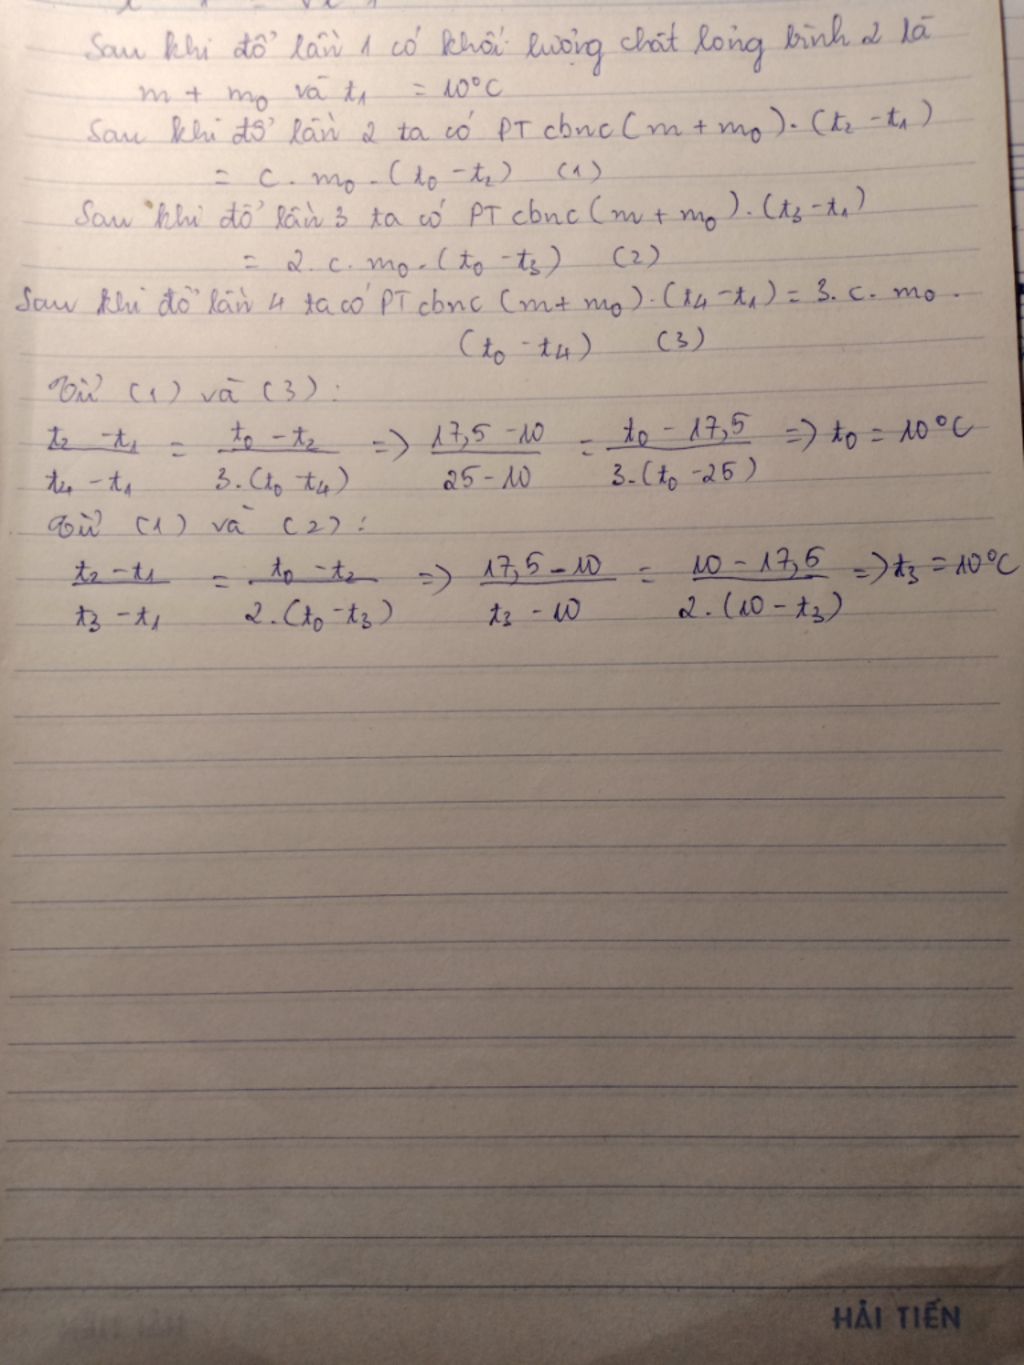 Sau khi đổ lần 1 có khối lượng chất lỏng bình 2 là
m + m₀ và t₁ = 10°C
Sau khi đổ lần 2 ta có PT cbnc(m + m₀).(t₂ - t₁)
= c.m₀.(t₀ - t₂) (1)
Sau khi đổ lần 3 ta có PT cbnc(m + m₀).(t₃ - t₁)
= 2.c.m₀.(t₀ - t₃) (2)
Sau khi đổ lần 4 ta có PT cbnc (m + m₀).(t₄ - t₁) = 3.c.m₀.
(t₀ - t₄) (3)
Từ (1) và (3):
t₂ - t₁ / t₄ - t₁ = t₀ - t₂ / 3.(t₀ - t₄) => 17,5 - 10 / 25 - 10 = t₀ - 17,5 / 3.(t₀ - 25) => t₀ = 10°C
Từ (1) và (2):
t₂ - t₁ / t₃ - t₁ = t₀ - t₂ / 2.(t₀ - t₃) => 17,5 - 10 / t₃ - 10 = 10 - 17,5 / 2.(10 - t₃) => t₃ = 10°C
HẢI TIẾN